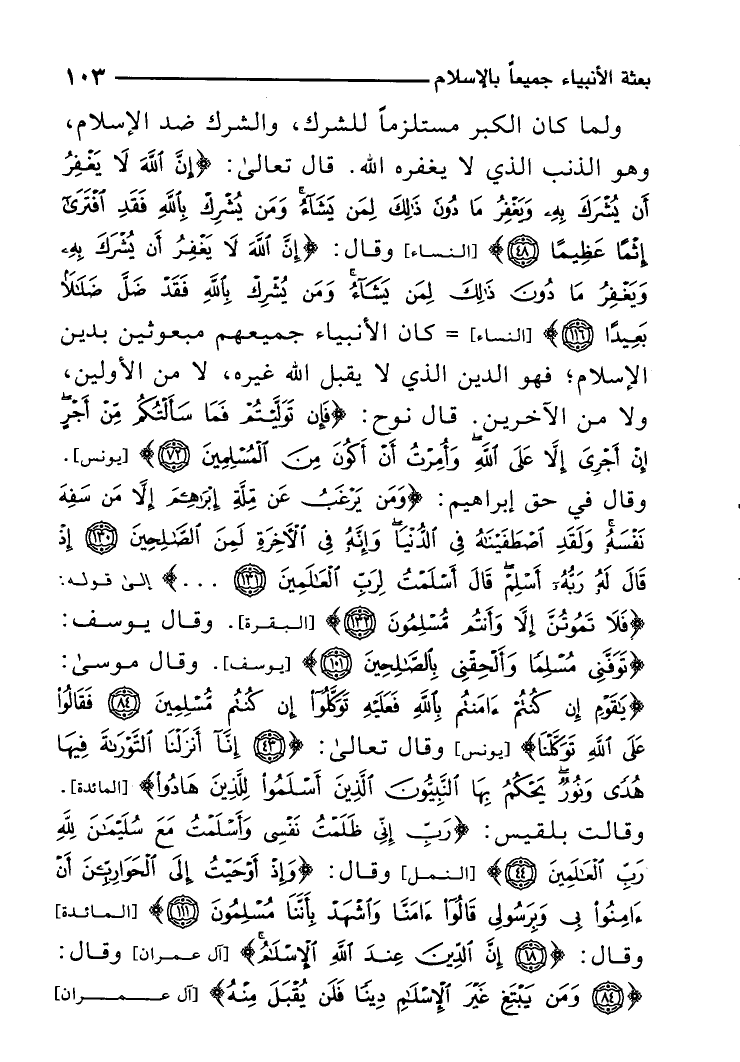 بعثة الأنبياء جميعاً بالإسلام ١٠٣
ولما كان الكبر مستلزماً للشرك، والشرك ضد الإسلام،
وهو الذنب الذي لا يغفره الله. قال تعالىٰ: ﴿إِنَّ ٱللَّهَ لَا يَغْفِرُ
أَن يُشْرَكَ بِهِۦ وَيَغْفِرُ مَا دُونَ ذَٰلِكَ لِمَن يَشَآءُ ۚ وَمَن يُشْرِكْ بِٱللَّهِ فَقَدِ ٱفْتَرَىٰٓ
إِثْمًا عَظِيمًا ٤٨﴾ [النساء] وقال: ﴿إِنَّ ٱللَّهَ لَا يَغْفِرُ أَن يُشْرَكَ بِهِۦ
وَيَغْفِرُ مَا دُونَ ذَٰلِكَ لِمَن يَشَآءُ ۚ وَمَن يُشْرِكْ بِٱللَّهِ فَقَدْ ضَلَّ ضَلَٰلًۢا
بَعِيدًا ١١٦﴾ [النساء] = كان الأنبياء جميعهم مبعوثين بدين
الإسلام؛ فهو الدين الذي لا يقبل الله غيره، لا من الأولين،
ولا من الآخرين. قال نوح: ﴿فَإِن تَوَلَّيْتُمْ فَمَا سَأَلْتُكُم مِّنْ أَجْرٍ ۖ
إِنْ أَجْرِىَ إِلَّا عَلَى ٱللَّهِ ۖ وَأُمِرْتُ أَنْ أَكُونَ مِنَ ٱلْمُسْلِمِينَ ٧٢﴾ [يونس].
وقال في حق إبراهيم: ﴿وَمَن يَرْغَبُ عَن مِّلَّةِ إِبْرَٰهِـۧمَ إِلَّا مَن سَفِهَ
نَفْسَهُۥ ۚ وَلَقَدِ ٱصْطَفَيْنَٰهُ فِى ٱلدُّنْيَا ۖ وَإِنَّهُۥ فِى ٱلْـَٔاخِرَةِ لَمِنَ ٱلصَّٰلِحِينَ ١٣٠ إِذْ
قَالَ لَهُۥ رَبُّهُۥٓ أَسْلِمْ ۖ قَالَ أَسْلَمْتُ لِرَبِّ ٱلْعَٰلَمِينَ ١٣١ ...﴾ إلىٰ قوله:
﴿فَلَا تَمُوتُنَّ إِلَّا وَأَنتُم مُّسْلِمُونَ ١٣٢﴾ [البقرة]. وقال يوسف:
﴿تَوَفَّنِى مُسْلِمًا وَأَلْحِقْنِى بِٱلصَّٰلِحِينَ ١٠١﴾ [يوسف]. وقال موسىٰ:
﴿يَٰقَوْمِ إِن كُنتُمْ ءَامَنتُم بِٱللَّهِ فَعَلَيْهِ تَوَكَّلُوٓا۟ إِن كُنتُم مُّسْلِمِينَ ٨٤ فَقَالُوا۟
عَلَى ٱللَّهِ تَوَكَّلْنَا﴾ [يونس] وقال تعالىٰ: ﴿٤٣ إِنَّآ أَنزَلْنَا ٱلتَّوْرَىٰةَ فِيهَا
هُدًى وَنُورٌ ۚ يَحْكُمُ بِهَا ٱلنَّبِيُّونَ ٱلَّذِينَ أَسْلَمُوا۟ لِلَّذِينَ هَادُوا۟﴾ [المائدة].
وقالت بلقيس: ﴿رَبِّ إِنِّى ظَلَمْتُ نَفْسِى وَأَسْلَمْتُ مَعَ سُلَيْمَٰنَ لِلَّهِ
رَبِّ ٱلْعَٰلَمِينَ ٤٤﴾ [النمل] وقال: ﴿وَإِذْ أَوْحَيْتُ إِلَى ٱلْحَوَارِيِّـۧنَ أَنْ
ءَامِنُوا۟ بِى وَبِرَسُولِى قَالُوٓا۟ ءَامَنَّا وَٱشْهَدْ بِأَنَّنَا مُسْلِمُونَ ١١١﴾ [المائدة]
وقال: ﴿١٨ إِنَّ ٱلدِّينَ عِندَ ٱللَّهِ ٱلْإِسْلَٰمُ ۗ﴾ [آل عمران] وقال:
﴿٨٤ وَمَن يَبْتَغِ غَيْرَ ٱلْإِسْلَٰمِ دِينًا فَلَن يُقْبَلَ مِنْهُ﴾ [آل عمران]